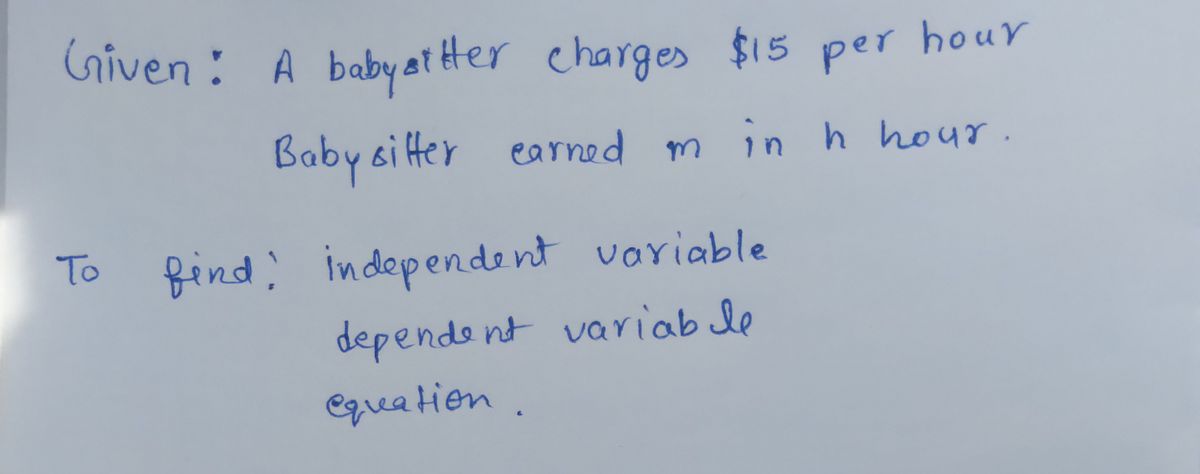 Given: A babysitter charges $15 per hour
Babysitter earned m in h hour.
To find: independent variable
dependent variable
equation.